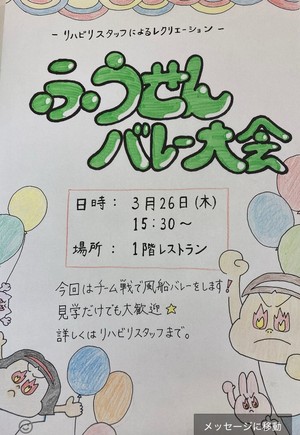 - リハビリスタッフによるレクリエーション -
ふうせん
バレー大会
日時： 3月26日(木)
15:30～
場所： 1階レストラン
今回はチーム戦で風船バレーをします!
見学だけでも大歓迎☆
詳しくはリハビリスタッフまで。
メッセージに移動